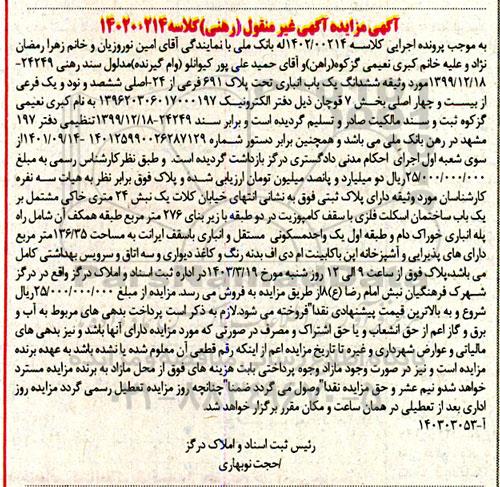 آگهی مزایده آگهی غیر منقول (رهنی)کلاسه ۱۴۰۲۰۰۲۱۴
به موجب پرونده اجرایی کلاسه ۱۴۰۲/۰۰۲۱۴له بانک ملی با نمایندگی آقای امین نوروزیان و خانم زهرا رمضان
نژاد و علیه خانم کبری نعیمی گزکوه(راهن)و آقای حمید علی پور کیوانلو (وام گیرنده)مدلول سند رهنی ۲۴۲۴۹-
۱۳۹۹/۱۲/۱۸مورد وثیقه ششدانگ یک باب انباری تحت پلاک ۶۹۱ فرعی از ۲۴-اصلی ششصد و نود و یک فرعی
از بیست و چهار اصلی بخش ۷ قوچان ذیل دفتر الکترونیک ۱۳۹۶۲۰۳۰۶۰۱۷۰۰۰۱۹۷ به نام کبری نعیمی
گزکوه ثبت و سند مالکیت صادر و تسلیم گردیده است و برابر سند ۲۴۲۴۹-۱۳۹۹/۱۲/۱۸تنظیمی دفتر ۱۹۷
مشهد در رهن بانک ملی می باشد و همچنین برابر دستور شماره ۱۴۰۱۲۵۹۹۰۰۲۶۲۸۷۱۲۹ -۱۴۰۱/۰۹/۱۴از
سوی شعبه اول اجرای احکام مدنی دادگستری درگز بازداشت گردیده است. و طبق نظر کارشناس رسمی به مبلغ
۲۵/۰۰۰/۰۰۰/۰۰۰ریال دو میلیارد و پانصد میلیون تومان ارزیابی شده و پلاک فوق برابر نظر به هیات سه نفره
کارشناسان مورد وثیقه دارای پلاک ثبتی فوق به نشانی انتهای خیابان کلات یک نبش ۲۴ متری خاکی مشتمل بر
یک باب ساختمان اسکلت فلزی با سقف کامپوزیت در دو طبقه با زیر بنای ۲۷۶ متر مربع طبقه همکف آن شامل راه
پله انباری خوراک دام و طبقه اول یک واحدمسکونی مستقل و انباری باسقف ایرانت به مساحت ۱۳۶/۳۵متر مربع
دارای های پذیرایی و آشپزخانه اپن باکابینت ام دی اف بدنه رنگ و کاغذ دیواری و سه اتاق و سرویس بهداشتی کامل
می باشد،پلاک فوق از ساعت ۹ الی ۱۲ روز شنبه مورخ ۱۴۰۳/۳/۱۹در اداره ثبت اسناد و املاک درگز واقع در درگز
شهرک فرهنگیان نبش امام رضا (ع)۸از طریق مزایده به فروش می رسد. مزایده از مبلغ ۲۵/۰۰۰/۰۰۰/۰۰۰ریال
شروع و به بالاترین قیمت پیشنهادی نقدا"فروخته می شود.لازم به ذکر است پرداخت بدهی های مربوط به آب و
برق و گاز اعم از حق انشعاب و یا حق اشتراک و مصرف در صورتی که مورد مزایده دارای آنها باشد و نیز بدهی های
مالیاتی و عوارض شهرداری و غیره تا تاریخ مزایده اعم از اینکه رقم قطعی آن معلوم شده یا نشده باشد به عهده برنده
مزایده است و نیز در صورت وجود مازاد وجوه پرداختی بابت هزینه های فوق از محل مازاد به برنده مزایده مسترد
خواهد شدو نیم عشر و حق مزایده نقدا"وصول می گردد ضمنا"چنانچه روز مزایده تعطیل رسمی گردد مزایده روز
اداری بعد از تعطیلی در همان ساعت و مکان مقرر برگزار خواهد شد.
آ-۱۴۰۳۰۳۰۵۳
رئیس ثبت اسناد و املاک درگز
/حجت نوبهاری